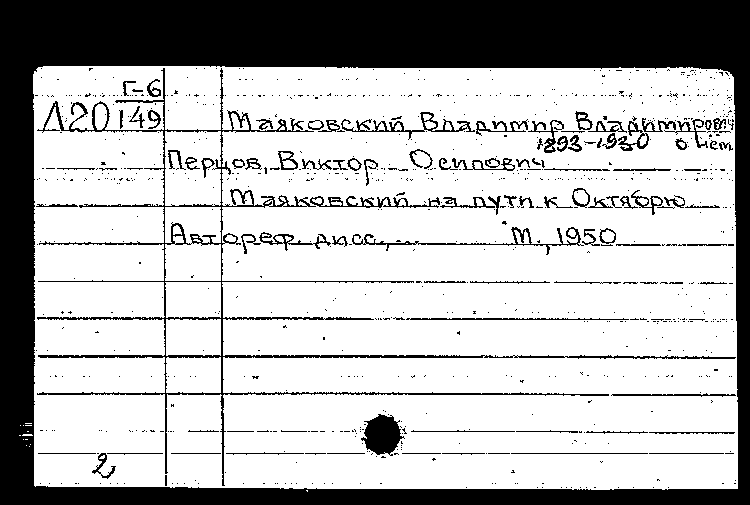 Г-6
Л20 149 Маяковский, Владимир Владимирович
1893-1930 о нём
Перцов, Виктор Осипович
Маяковский на пути к Октябрю.
Автореф. дисс.,... М., 1950
2